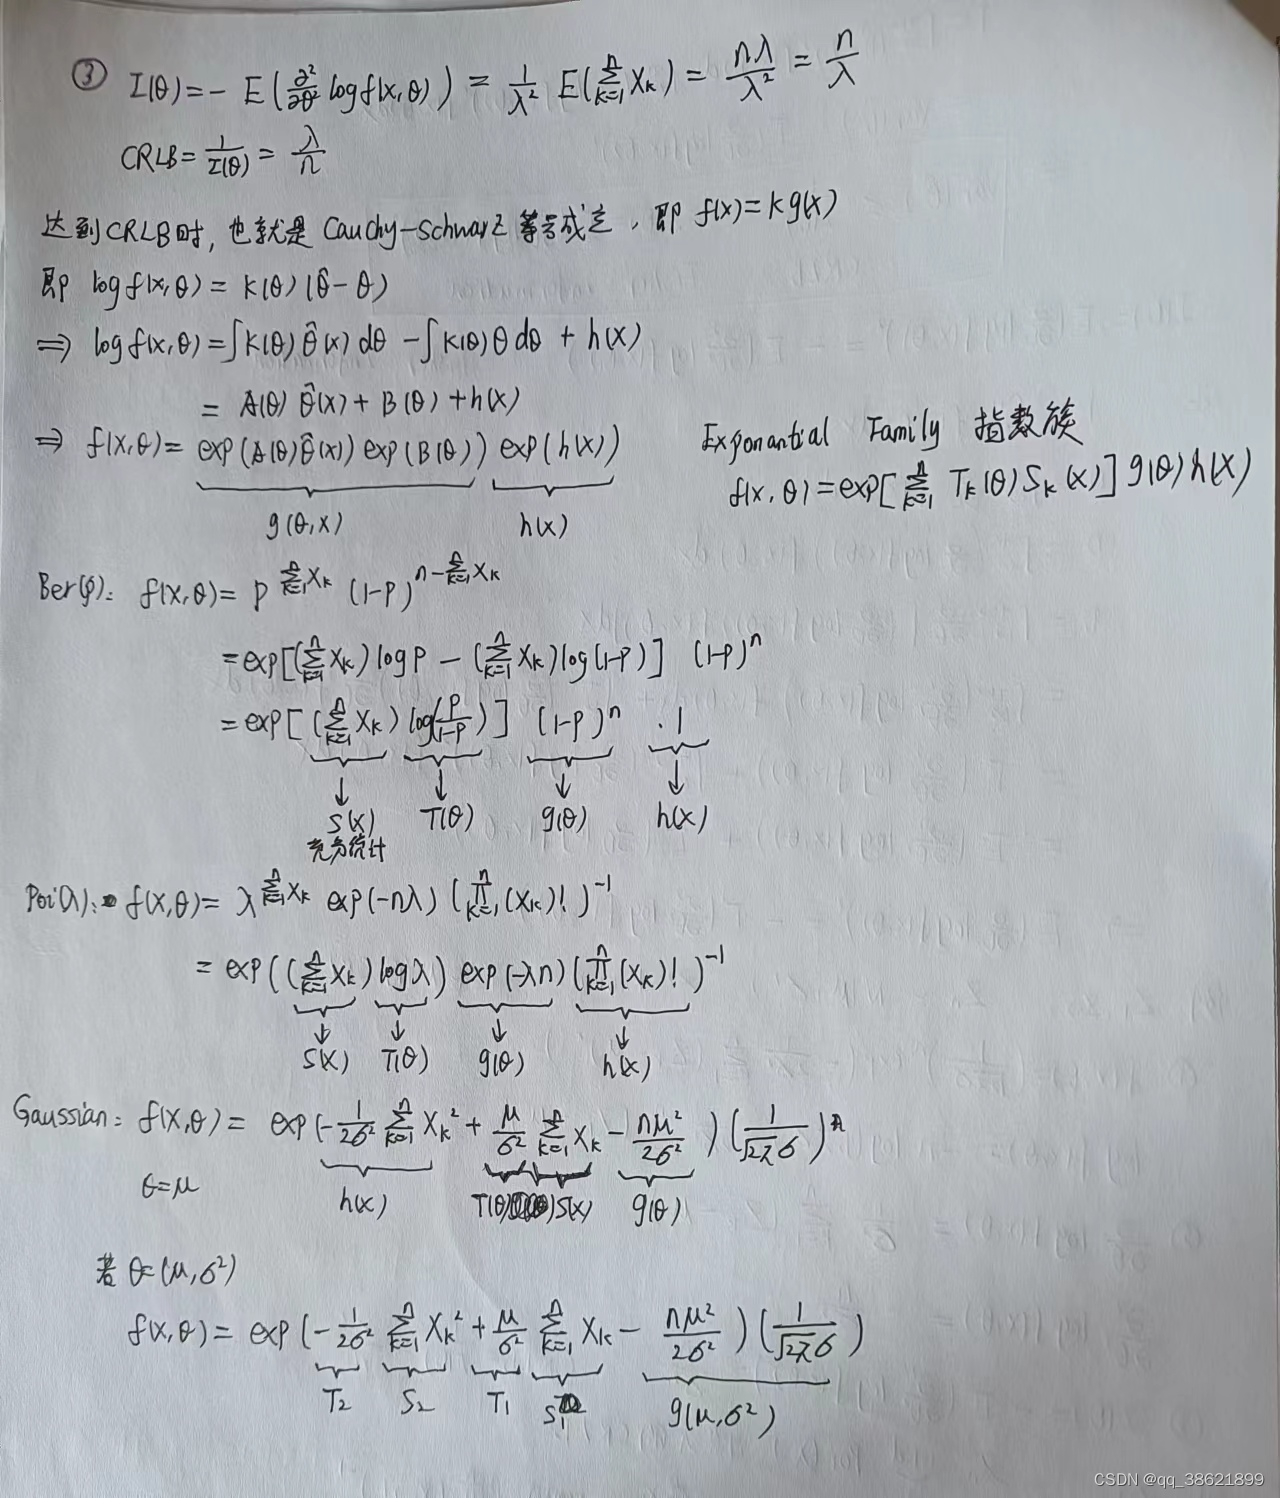 ③ I(θ) = - E(∂²/∂θ² log f(x,θ)) = 1/λ² E(∑_{k=1}^n X_k) = nλ/λ² = n/λ
CRLB = 1/I(θ) = λ/n
达到CRLB时, 也就是 Cauchy-Schwarz 等号成立, 即 f(x)=kg(x)
即 log f(x,θ) = k(θ)(θ̂-θ)
⇒ log f(x,θ) = ∫k(θ)θ̂(x)dθ - ∫k(θ)θdθ + h(x)
= A(θ)θ̂(x) + B(θ) + h(x)
⇒ f(x,θ) = exp(A(θ)θ̂(x)) exp(B(θ)) exp(h(x))
g(θ,x) h(x)
Exponantial Family 指数族
f(x,θ) = exp[∑_{k=1}^n T_k(θ)S_k(x)] g(θ)h(x)
Ber(p): f(x,θ) = p^{∑_{k=1}^n X_k} (1-p)^{n-∑_{k=1}^n X_k}
= exp[(∑_{k=1}^n X_k) log p - (∑_{k=1}^n X_k) log(1-p)] (1-p)^n
= exp[(∑_{k=1}^n X_k) log(p/(1-p))] (1-p)^n · 1
↓ ↓ ↓ ↓
S(x) T(θ) g(θ) h(x)
充分统计
Poi(λ): f(x,θ) = λ^{∑_{k=1}^n X_k} exp(-nλ) (∏_{k=1}^n (X_k)!)^{-1}
= exp((∑_{k=1}^n X_k) log λ) exp(-λn) (∏_{k=1}^n (X_k)!)^{-1}
↓ ↓ ↓ ↓
S(x) T(θ) g(θ) h(x)
Gaussian: f(x,θ) = exp(-1/2σ² ∑_{k=1}^n X_k² + μ/σ² ∑_{k=1}^n X_k - nμ²/2σ²) (1/√2π σ)^n
θ=μ h(x) T(θ) S(x) g(θ)
若 θ=(μ,σ²)
f(x,θ) = exp(-1/2σ² ∑_{k=1}^n X_k² + μ/σ² ∑_{k=1}^n X_k - nμ²/2σ²) (1/√2π σ)
T₂ S₂ T₁ S₁ g(μ,σ²)
CSDN @qq_38621899